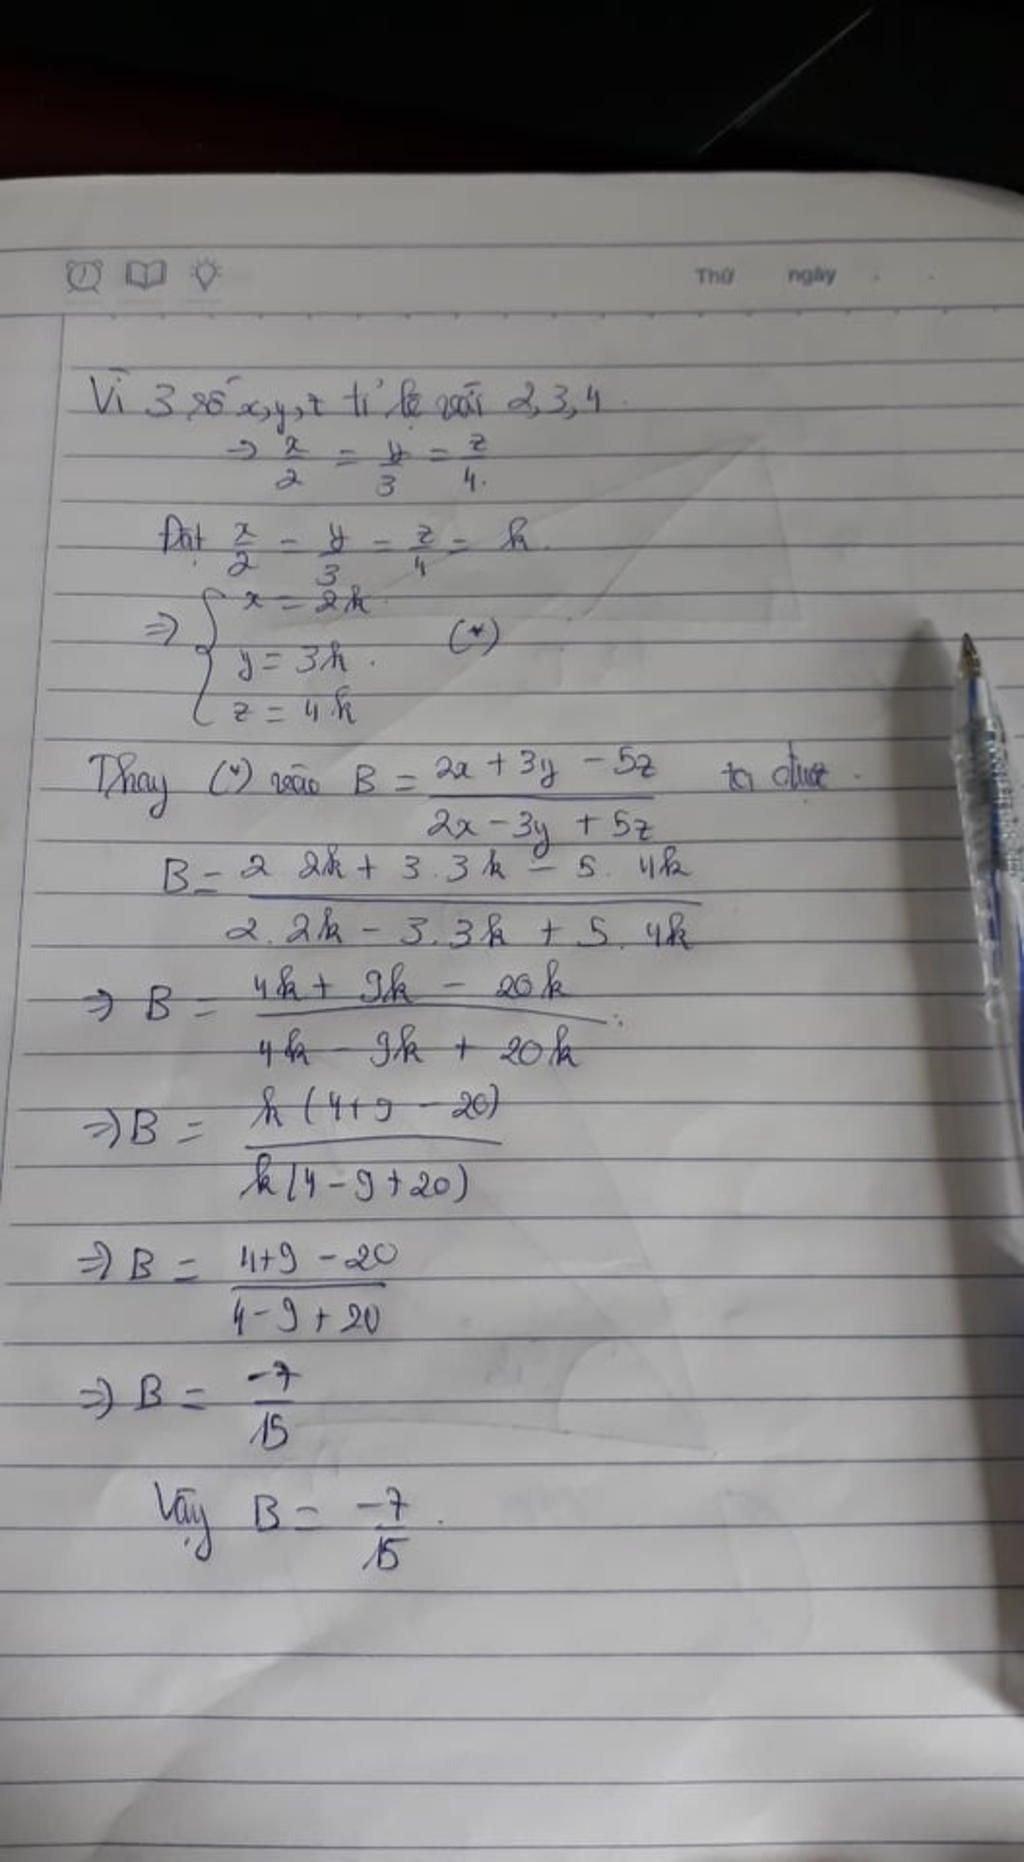 Thứ ngày
Vì 3 số x,y,z tỉ lệ với 2,3,4
=> x/2 = y/3 = z/4.
Đặt x/2 = y/3 = z/4 = k.
=> { x = 2k
y = 3k. (*)
z = 4k
Thay (*) vào B = (2x + 3y - 5z)/(2x - 3y + 5z) ta được.
B = (2 2k + 3.3k - 5.4k)/(2.2k - 3.3k + 5.4k)
=> B = (4k + 9k - 20k)/(4k - 9k + 20k)
=> B = k(4+9-20)/k(4-9+20)
=> B = (4+9-20)/(4-9+20)
=> B = -7/15
Vậy B = -7/15.